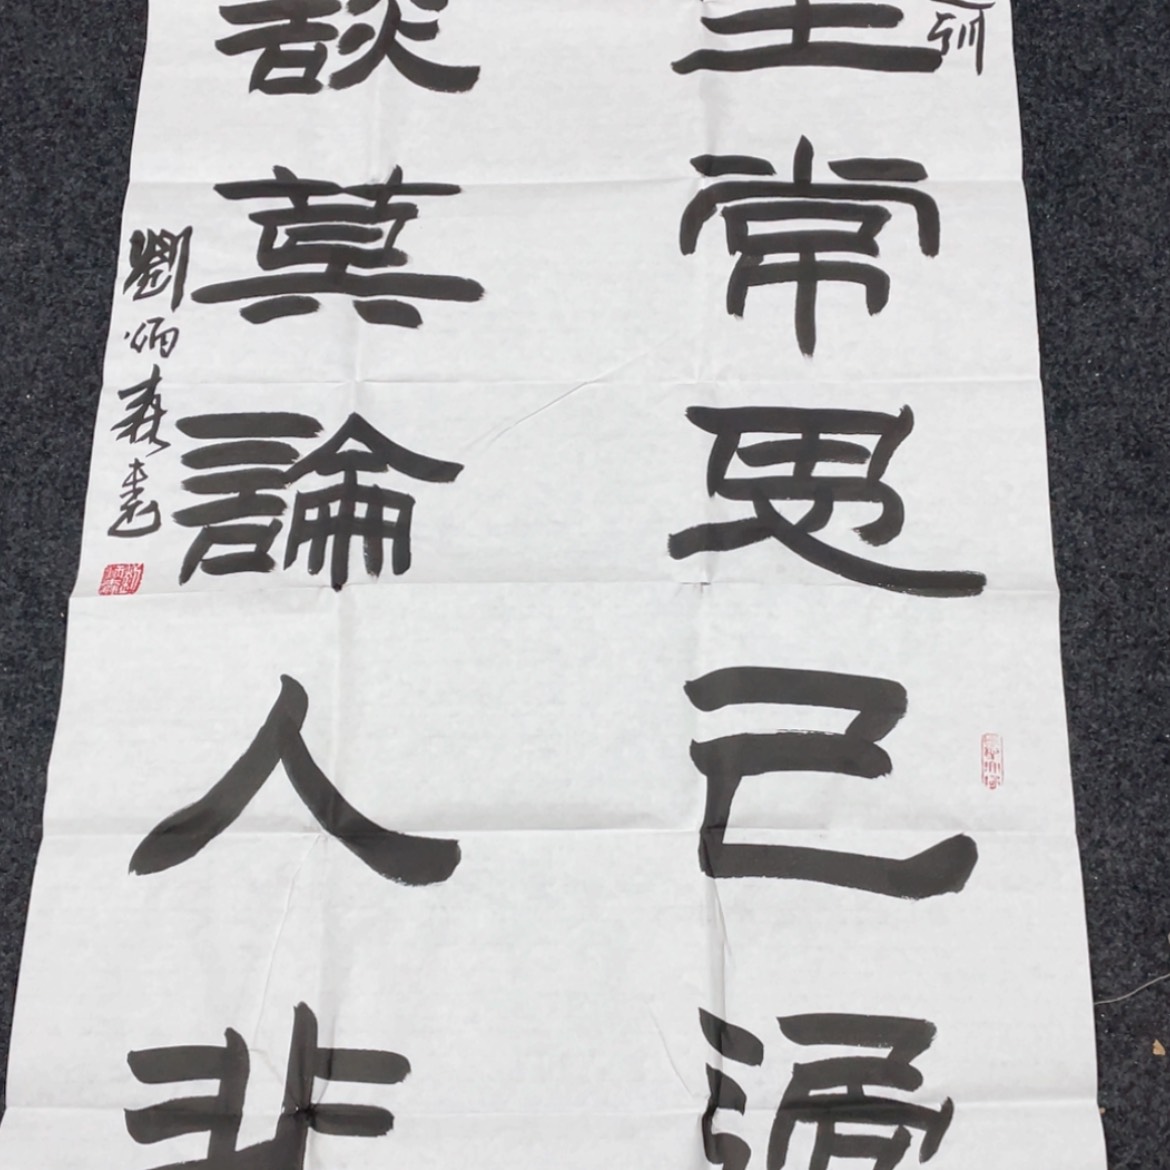 訓
坐常思己過
談莫論人非
劉炳森書